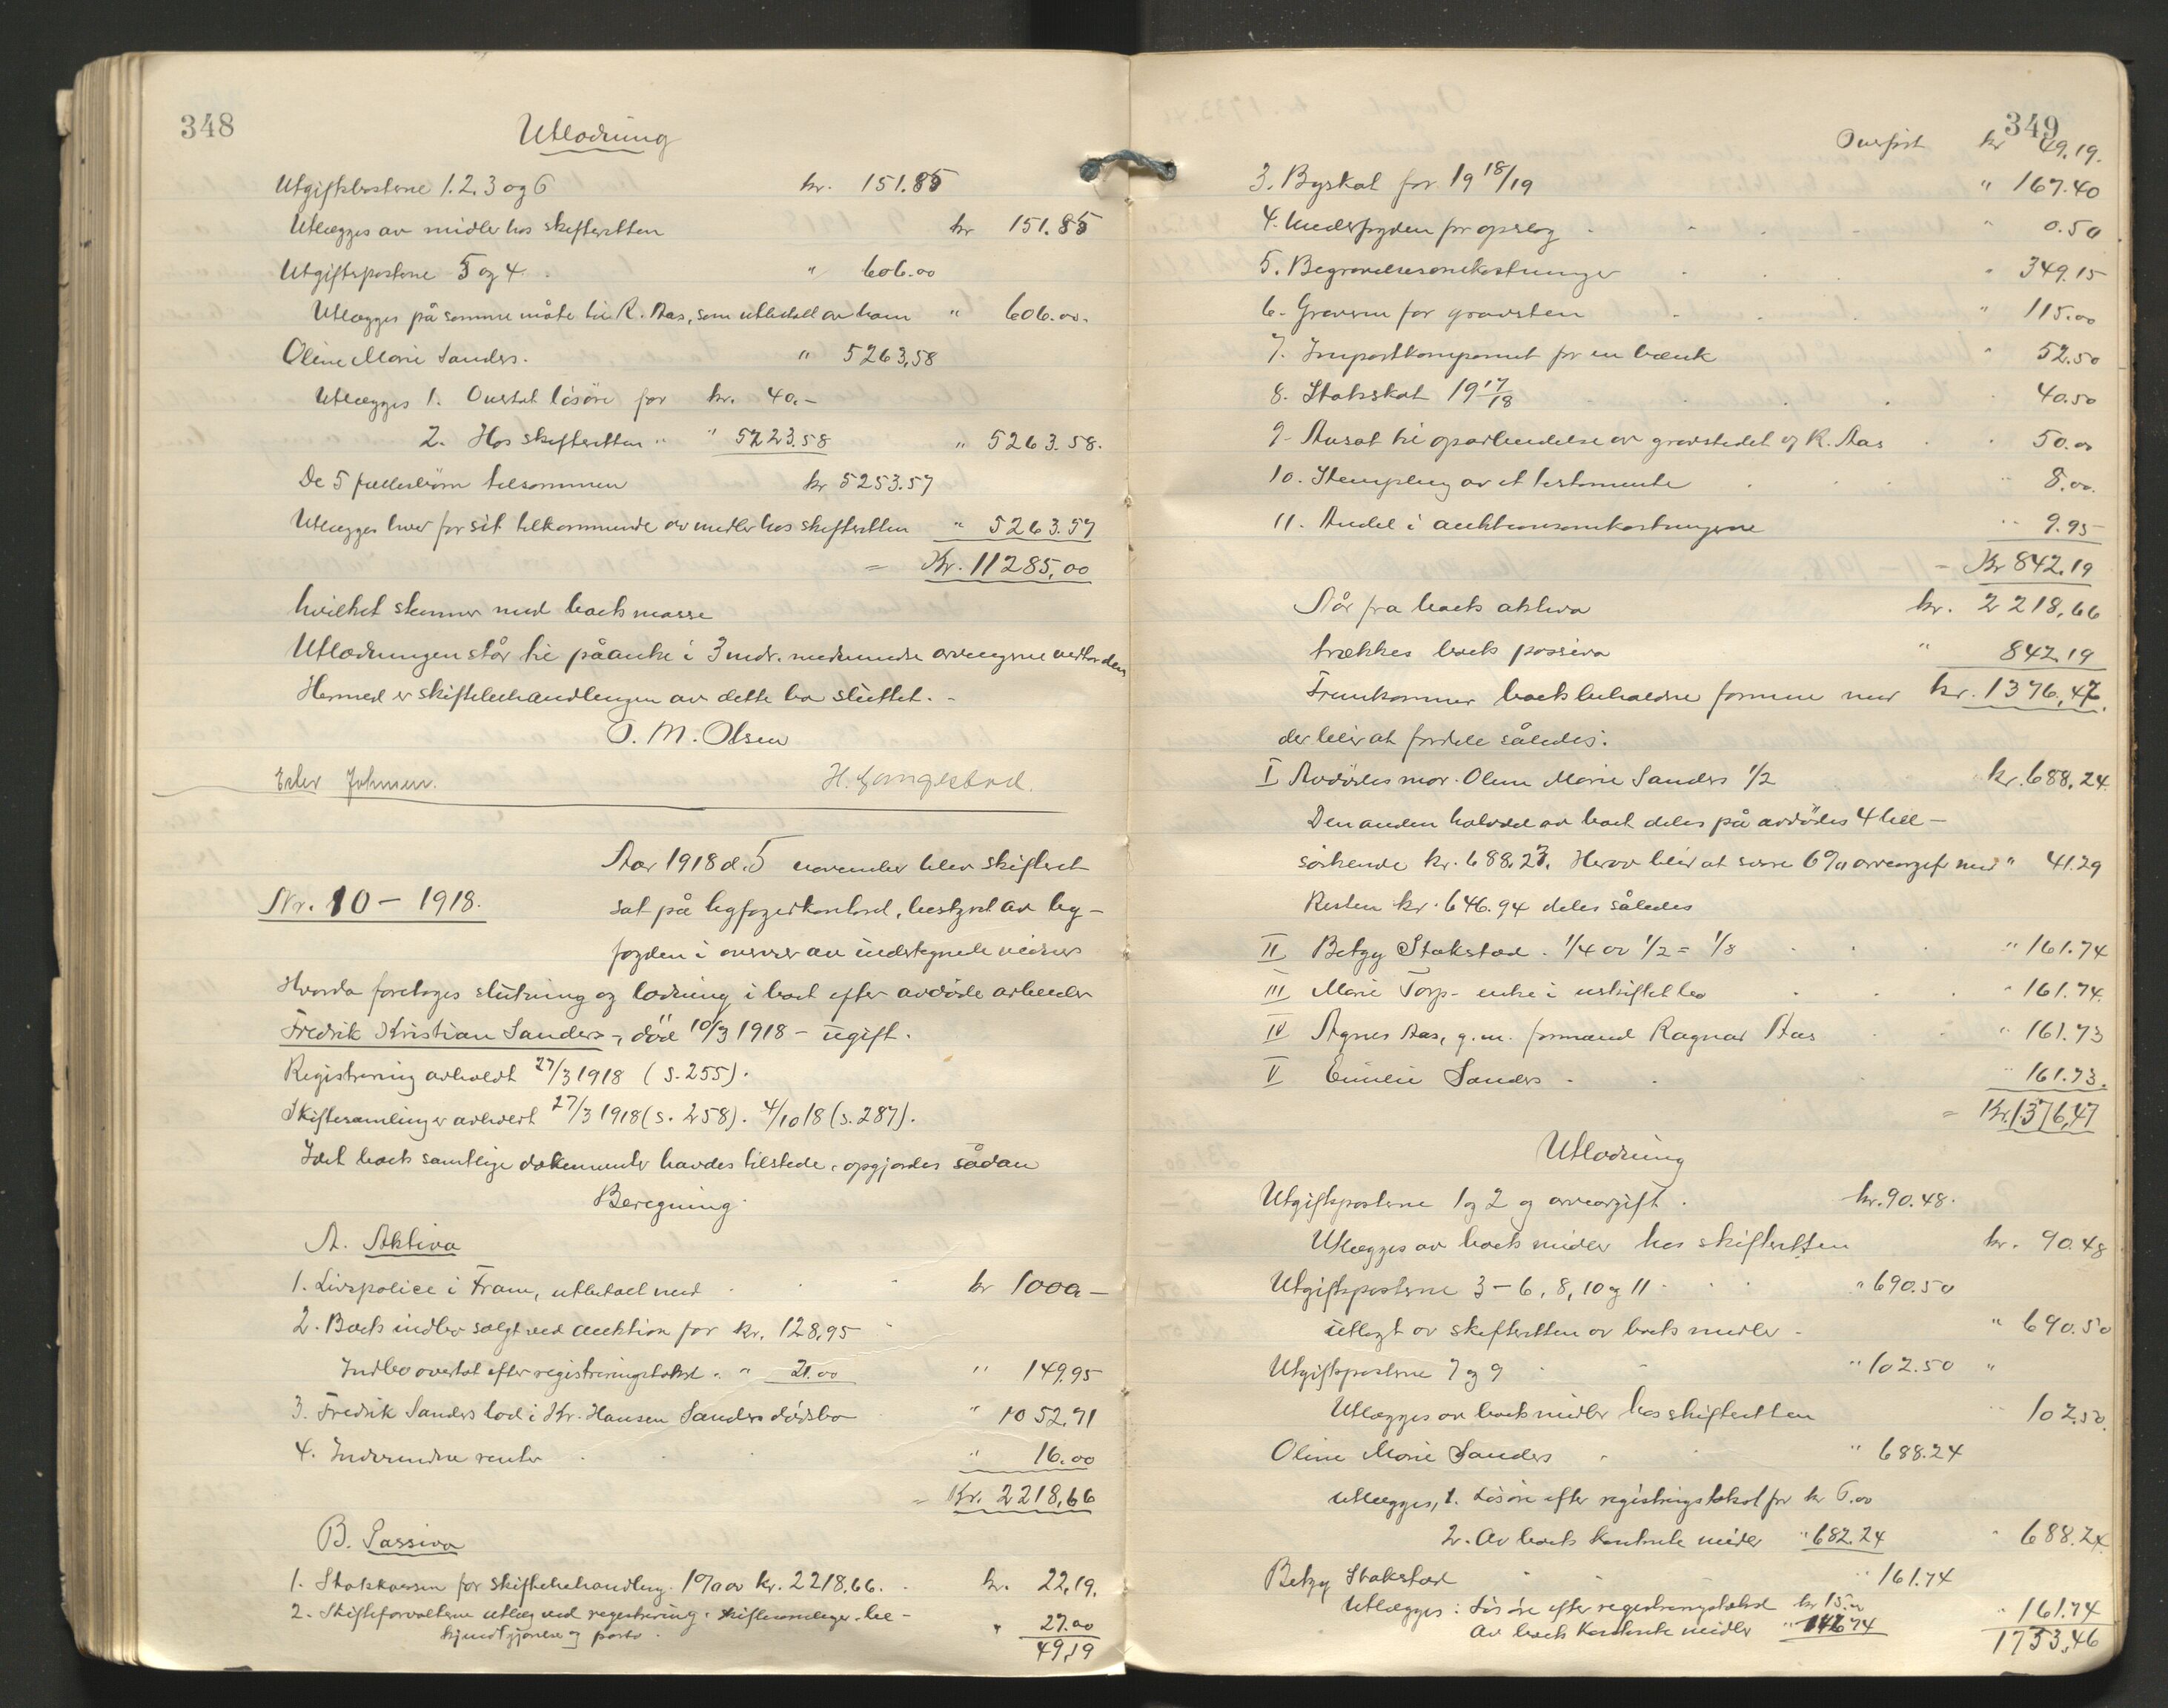 348
Utlodning
Utgiftspostene 1. 2, 3 og 6 kr. 151.85
Utlægges av midler hos skifteretten kr 151.85
Utgiftspostene 5 og 4. " 606.00
Utlægges på samme måte til R. Aas, som utbetalt av ham " 606.00.
Oline Marie Sanders. " 5263,58
Utlægges 1. Overtat lösöre for kr. 40.-
2. Hos skifteretten " " 5223.58 " 5263.58.
De 5 fællesbörn tilsammen kr 5253.57
Utlægges hver for sit tilkommende av midler hos skifteretten " 5263.57
= Kr. 11285,00
hvilket stemmer med boets masse
Utlodningen står til påanke i 3 mdr. arvingerne
Hermed er skiftebehandlingen av dette bo sluttet. -
O. M. Olsen
Ester Johnsen. H. Gangestad.
Nr. 10 - 1918.
Aar 1918 d. 5 november blev skifteret
sat på byfogedkontoret, bestyret av by-
fogden i overvær av undertegnede vidner
Hvorda foretoges slutning og lodning i boet efter avdöde arbeider
Fredrik Kristian Sanders, död 10/3 1918 - ugift.
Registrering avholdt 27/3 1918 (S. 255).
Skiftesamlinger avholdt 27/3 1918 (s. 258). 4/10 18 (s. 287).
Idet boets samtlige dokumenter havdes tilstede, opgjordes sådan
Beregning
A. Aktiva
1. Livspolice i Fram, utbetalt med kr 1000 -
2. Boets indbo solgt ved auktion for kr. 128,95
Indbo overtat efter registreringstakst . " 21.00 " 149.95
3. Fredrik Sanders lod i Kr. Hansen Sanders dödsbo " 1052,71
4. Indvundne renter " 16.00
= Kr. 2218,66
B. Passiva
1. Statskassen for skiftebehandling. 1% av kr. 2218.66. kr. 22,19.
2. Skifteforvalterens utlæg ved registrering, skiftesamlinger, be-
kjendtgjörelse og porto. " 27.00
49,19
349
Overfört kr 49.19.
3. Byskat for 19 18/19 " 167.40
4. Underfogden for opslag " 0.50
5. Begravelsesomkostninger " 349.15
6. Graveren for gravsten " 115.00
7. Importkompaniet for en bænk " 52.50
8. Statsskat 19 17/18 40.50
9. Avsat til oparbeidelse av gravstedet v/ R. Aas 50.00
10. Stempling av et testamente 8.00.
11. Andel i auktionsomkostningerne 9.95
= Kr 842,19
Når fra boets aktiva kr. 2218,66
trækkes boets passiva " 842,19
Fremkommer boets beholdne formue med kr. 1376,47.
der blir at fordele således:
I Avdödes mor. Oline Marie Sanders 1/2 kr. 688,24.
Den anden halvdel av boet deles på avdödes 4 hel-
söskende kr. 688,23. Herav blir at svare 6% arveavgift med " 41.29
Resten kr. 646.94 deles således
II Betzy Stokstad. 1/4 av 1/2 = 1/8 " 161.74
III Marie Torp - enke i uskiftet bo " 161.74.
IV Agnes Aas, g. m. formand Ragnar Aas " 161.73
V Emilie Sanders - " 161.73.
= Kr. 1376,47
Utlodning
Utgiftsposterne 1 og 2 og arveavgift. kr. 90.48.
Utlægges av boets midler hos skifteretten kr. 90.48
Utgiftsposterne 3 - 6, 8, 10 og 11 " 690.50
utlagt av skifteretten av boets midler - " 690.50
Utgiftsposterne 7 og 9 " 102.50 "
Utlægges av boets midler hos skifteretten 102.50.
Oline Marie Sanders " 688.24
Utlægges, 1. Lösöre efter registringstakst for kr 6.00
2. Av boets kontante midler " 682.24 " 688.24.
Betzy Stokstad " 161.74
Utlægges: Lösöre efter registreringstakst kr 15.00 " 161.74
Av boets kontante midler " 146.74
1733,46